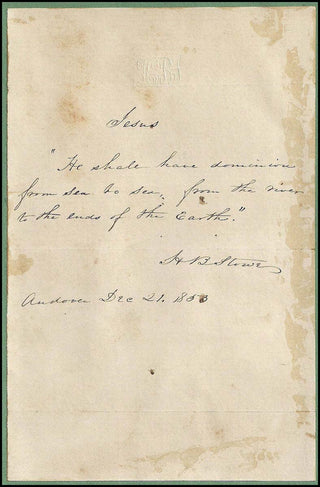 Jesus
"He shall have dominion
from sea to sea, from the river
to the ends of the Earth."
H B Stowe
Andover Dec 21.